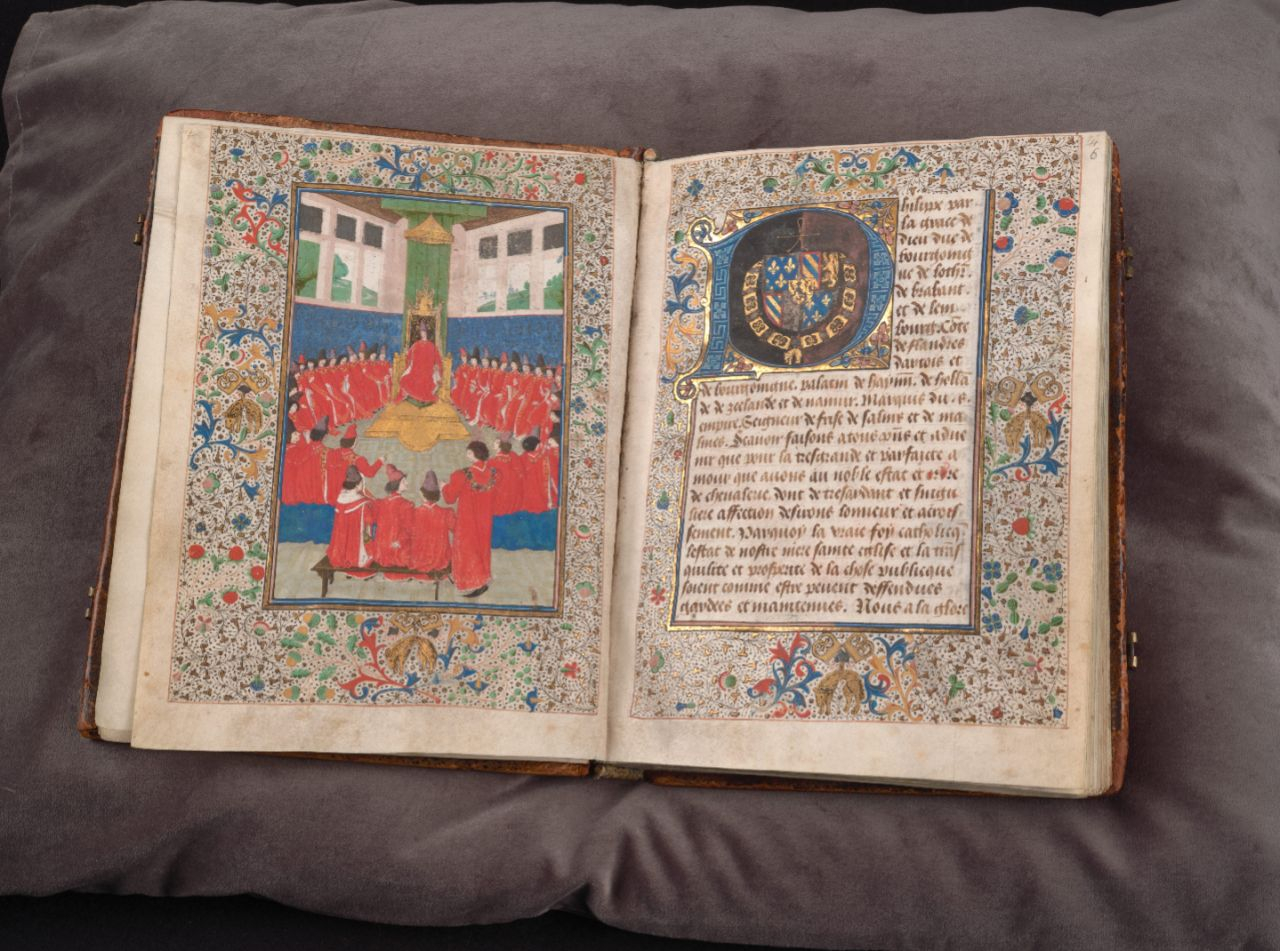 hilippe par
la grace de
dieu duc de
bourgoingne
uc de lothr.
de brabant.
et de lem
bourg. Côte
de flandres
dartois et
de bourgoingne. palatin de haynn. de holla
de de zeelande et de namur. Marquis du. s.
empire. Seigneur de frise de salins et de ma
lines. Scauoir faisons a tous et adue
nir que pour la tresgrande et parfaicte a
mour que auons au noble estat et ordre
de cheualerie. dont de tresardant et singu
liere affection desirons lonneur et acrois
sement. Parquoy la vraie foy catholicq
lestat de nostre mere sainte eglise et la tran
quilite et prosperite de la chose publicque
soient comme estre peuent deffendues
gardees et maintenues. Nous a la glore